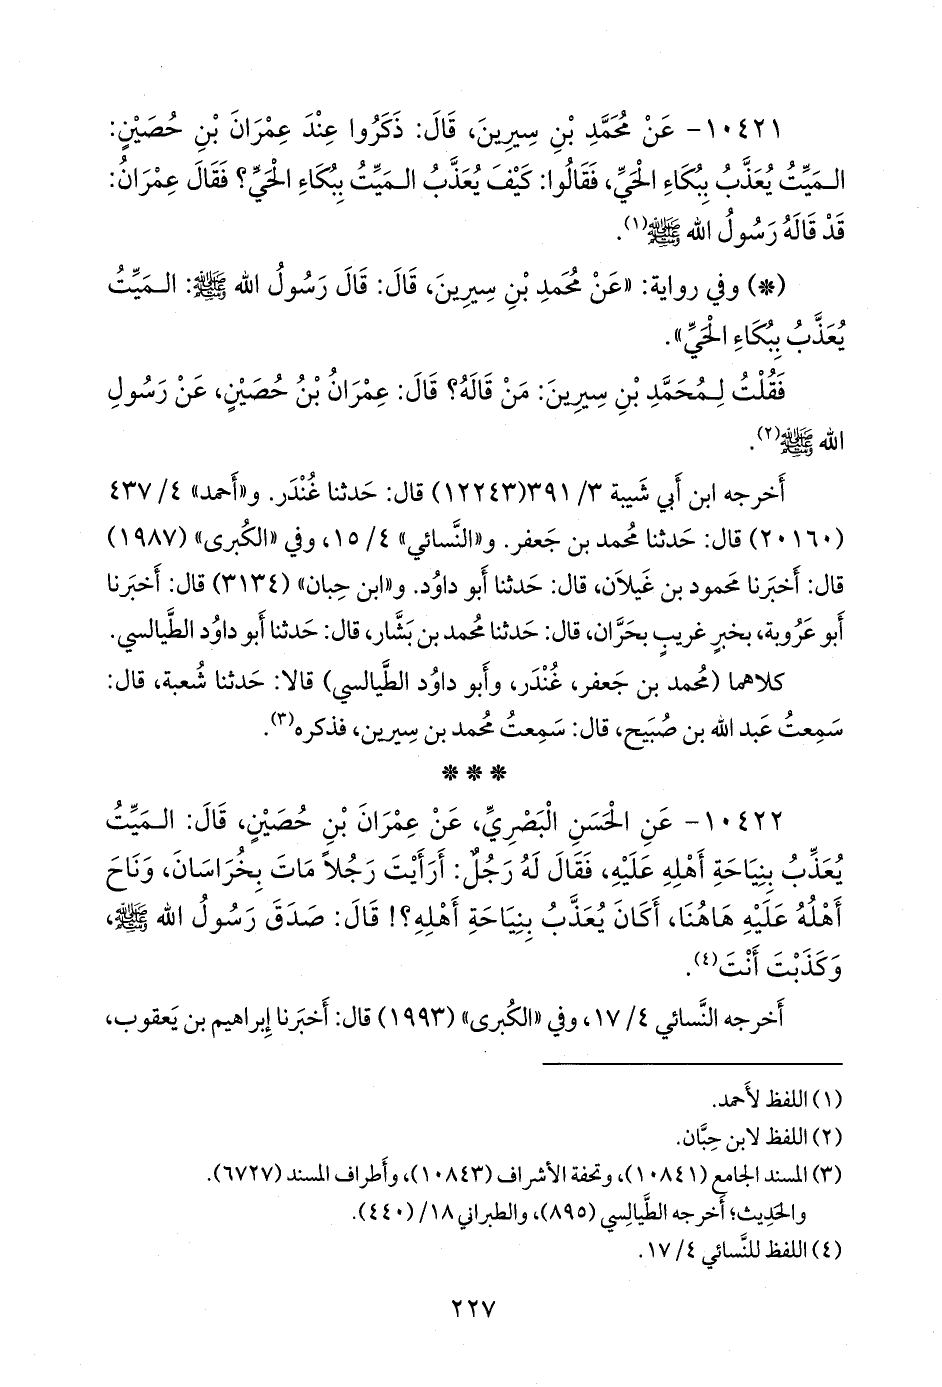 ١٠٤٢١- عَنْ مُحَمَّدِ بْنِ سِيرِينَ، قَالَ: ذَكَرُوا عِنْدَ عِمْرَانَ بْنِ حُصَيْنٍ:
الـمَيِّتُ يُعَذَّبُ بِبُكَاءِ الْحَيِّ، فَقَالُوا: كَيْفَ يُعَذَّبُ الـمَيِّتُ بِبُكَاءِ الْحَيِّ؟ فَقَالَ عِمْرَانُ:
قَدْ قَالَهُ رَسُولُ الله ﷺ(١).
(*) وفي رواية: «عَنْ مُحَمدِ بْنِ سِيرِينَ، قَالَ: قَالَ رَسُولُ الله ﷺ: الـمَيِّتُ
يُعَذَّبُ بِبُكَاءِ الْحَيِّ».
فَقُلْتُ لِـمُحَمَّدِ بْنِ سِيرِينَ: مَنْ قَالَهُ؟ قَالَ: عِمْرَانُ بْنُ حُصَيْنٍ، عَنْ رَسُولِ
الله ﷺ(٢).
أَخرجه ابن أَبي شَيبة ٣/ ٣٩١(١٢٢٤٣) قال: حَدثنا غُنْدَر. و«أَحمد» ٤/ ٤٣٧
(٢٠١٦٠) قال: حَدثنا مُحمد بن جَعفر. و«النَّسائي» ٤/ ١٥، وفي «الكُبرى» (١٩٨٧)
قال: أَخبَرنا مَحمود بن غَيلاَن، قال: حَدثنا أَبو داوُد. و«ابن حِبان» (٣١٣٤) قال: أَخبَرنا
أَبو عَرُوبة، بخبرٍ غريبٍ بحَرَّان، قال: حَدثنا مُحمد بن بَشَّار، قال: حَدثنا أَبو داوُد الطَّيالسي.
كلاهما (مُحمد بن جَعفر، غُنْدَر، وأَبو داوُد الطَّيالسي) قالا: حَدثنا شُعبة، قال:
سَمِعتُ عَبد الله بن صُبَيح، قال: سَمِعتُ مُحمد بن سِيرين، فذكره(٣).
* * *
١٠٤٢٢- عَنِ الْحَسَنِ الْبَصْرِيِّ، عَنْ عِمْرَانَ بْنِ حُصَيْنٍ، قَالَ: الـمَيِّتُ
يُعَذِّبُ بِنِيَاحَةِ أَهْلِهِ عَلَيْهِ، فَقَالَ لَهُ رَجُلٌ: أَرَأَيْتَ رَجُلاً مَاتَ بِخُرَاسَانَ، وَنَاحَ
أَهْلُهُ عَلَيْهِ هَاهُنَا، أَكَانَ يُعَذَّبُ بِنِيَاحَةِ أَهْلِهِ؟! قَالَ: صَدَقَ رَسُولُ الله ﷺ،
وَكَذَبْتَ أَنْتَ(٤).
أَخرجه النَّسائي ٤/ ١٧، وفي «الكُبرى» (١٩٩٣) قال: أَخبَرنا إِبراهيم بن يَعقوب،
(١) اللفظ لأَحمد.
(٢) اللفظ لابن حِبَّان.
(٣) المسند الجامع (١٠٨٤١)، وتحفة الأشراف (١٠٨٤٣)، وأَطراف المسند (٦٧٢٧).
والحَدِيث؛ أَخرجه الطَّيالِسي (٨٩٥)، والطبراني ١٨/ (٤٤٠).
(٤) اللفظ للنَّسائي ٤/ ١٧.
٢٢٧